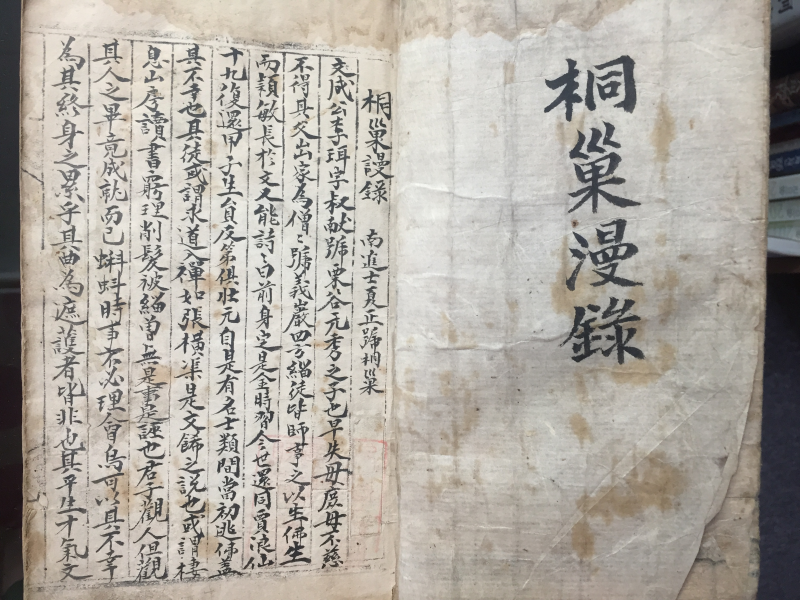 桐巢漫錄
桐巢謾錄 南進士夏正號桐巢
文成公李珥字叔献號栗谷元秀之子也早失母庶母不慈
不得其父出家為僧〻號義巖四方緇徒皆師事之以生佛生
而穎敏長於文又能詩〻曰前身定是金時習今世還同賈浪仙
十九復還甲子生員及第俱壯元自是有名士類間當初逃佛盖
其不幸也其徒或謂求道入禪如張橫渠是文飾之說也或謂棲
息山房讀書窮理削髮被緇曾無是事是誣也君子觀人但觀
其人之畢竟成就而已蝌蚪時事不必理會烏可以其不幸
為其終身之累乎其曲為遮護者皆非也其平生才氣文